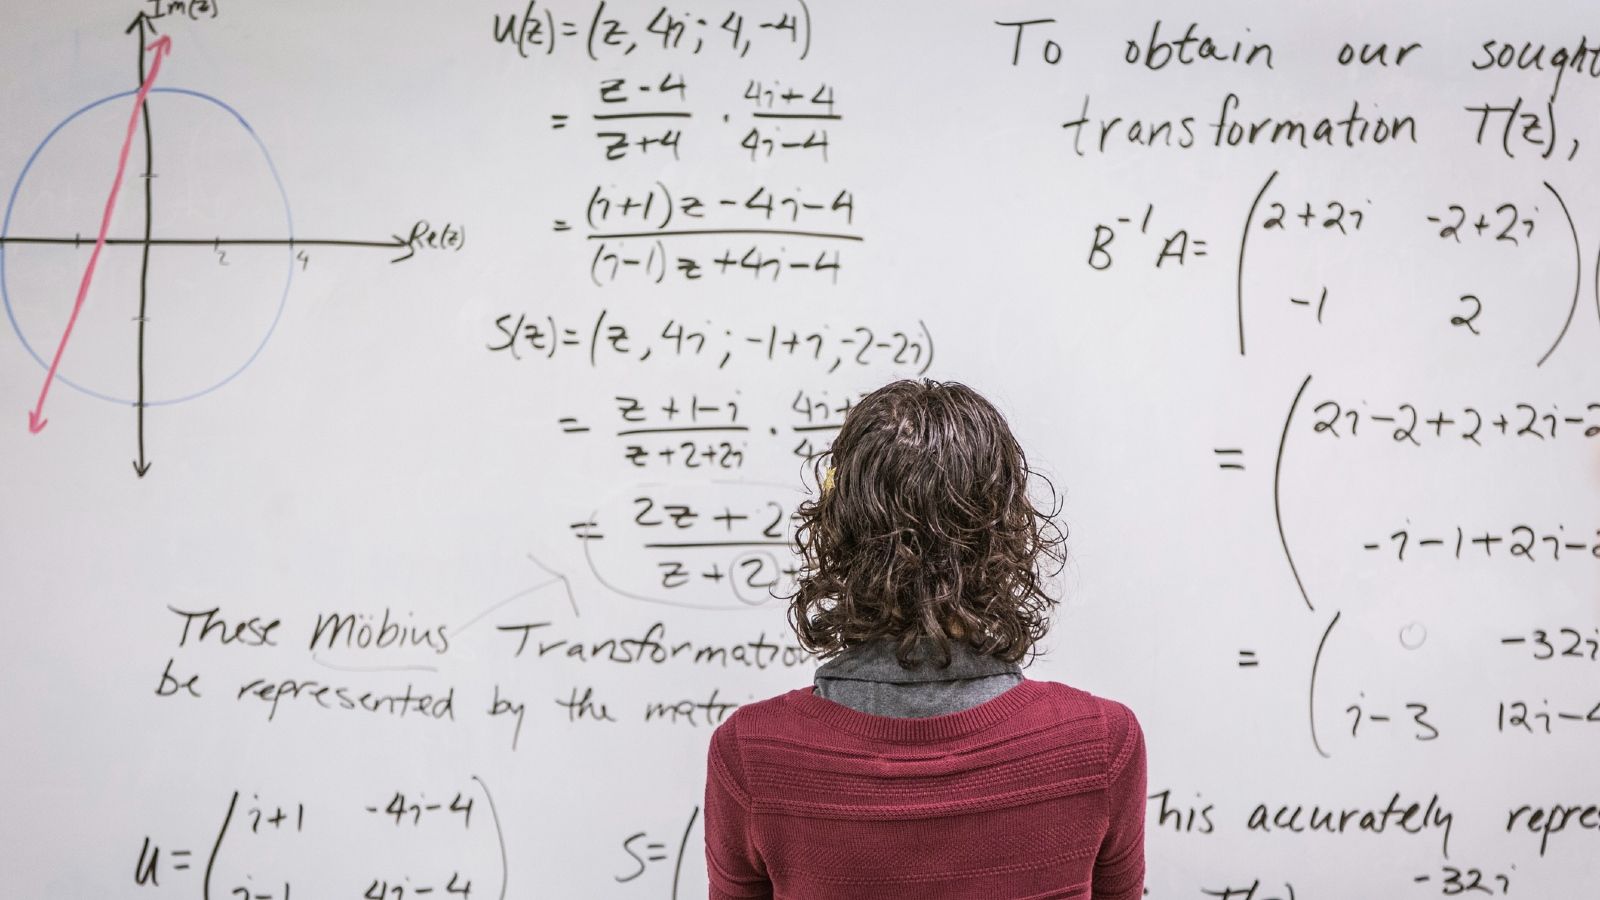 Im(z)
Re(z)
2
4
U(z)=(z, 4i; 4, -4)
= z-4/z+4 · 4i+4/4i-4
= (i+1)z-4i-4/(i-1)z+4i-4
S(z)=(z, 4i; -1+i, -2-2i)
= z+1-i/z+2+2i · 4i+
= 2z+2/z+2+
These Möbius Transformation
be represented by the matr
U= (i+1 -4i-4
i-1 4i-4)
S=(
To obtain our sought
transformation T(z),
B⁻¹A= (2+2i -2+2i
-1 2)(
= (2i-2+2+2i-2
-i-1+2i-2
= (0 -32i
i-3 12i-4
his accurately repre
-32i
T(z)